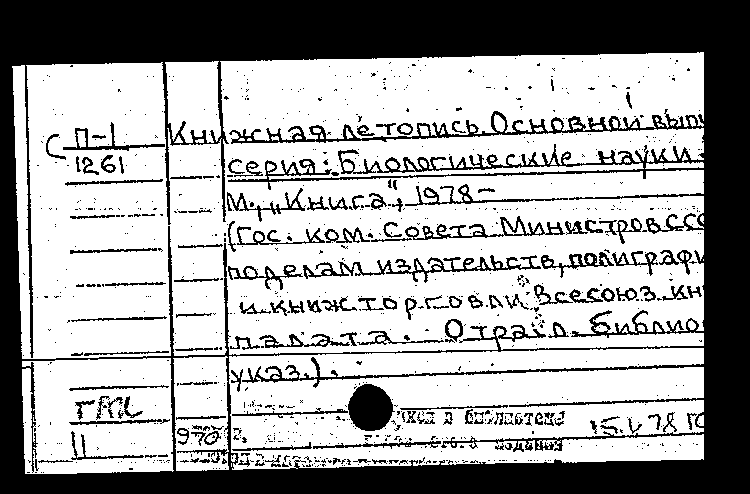 С П-1
1261
Книжная летопись. Основной вып
серия: Биологические науки.
М., „Книга", 1978-
(Гос. ком. Совета Министров ССС
по делам издательств, полиграфи
и книж. торговли. Всесоюз. кн
палата. Отрасл. библио
указ.).
II
970 г.
в библиотеке
издания
15.V.78